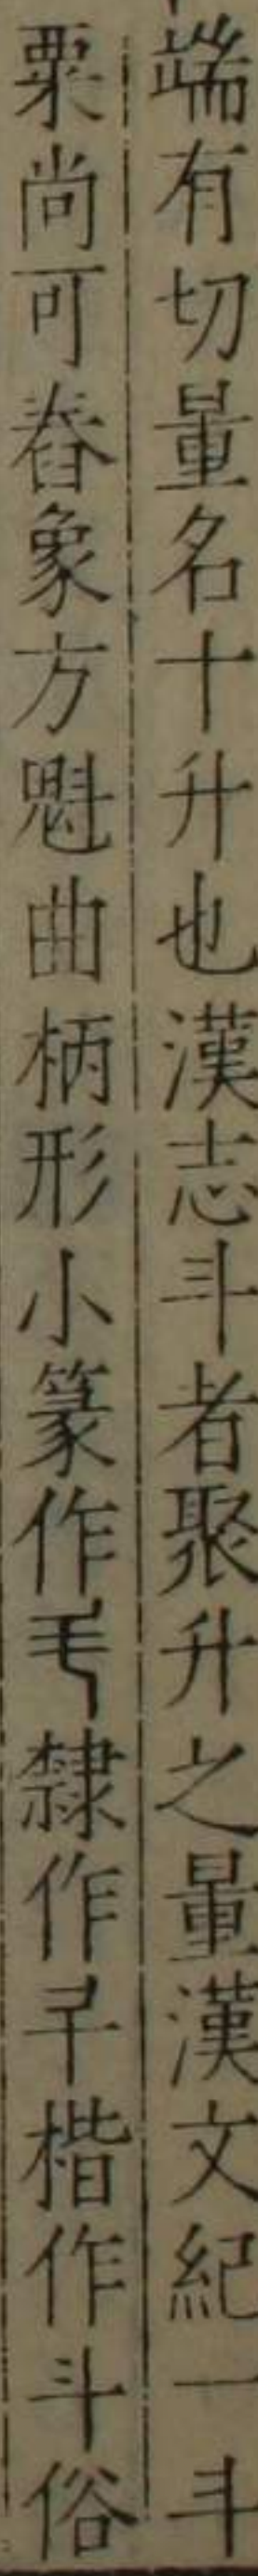 端有切量名十升也漢志斗者聚升之量漢文紀一斗
粟尚可舂象方魁曲柄形小篆作𠦄隸作㪷楷作斗俗